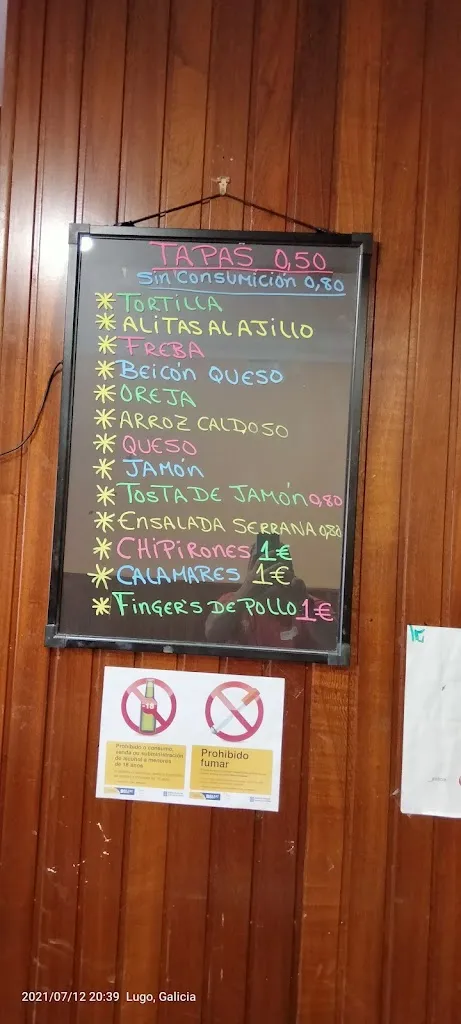 TAPAS 0,50
Sin Consumición 0,80
* TORTILLA
* ALITAS AL AJILLO
* FREBA
* BEICÓN QUESO
* OREJA
* ARROZ CALDOSO
* QUESO
* JAMÓN
* TOSTA DE JAMÓN 0,80
* ENSALADA SERRANA 0,80
* CHIPIRONES 1€
* CALAMARES 1€
* FINGER'S DE POLLO 1€
-18
Prohibido o consumo,
venda ou subministración
de alcohol a menores
de 18 anos
Prohibido
fumar
2021/07/12 20:39 Lugo, Galicia